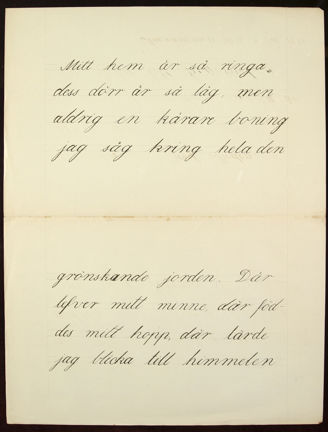 Mitt hem är så ringa,
dess dörr är så låg, men
aldrig en kärare boning
jag såg kring hela den
grönskande jorden. Där
lefver mitt minne, där föd-
des mitt hopp, där lärde
jag blicka till himmelen